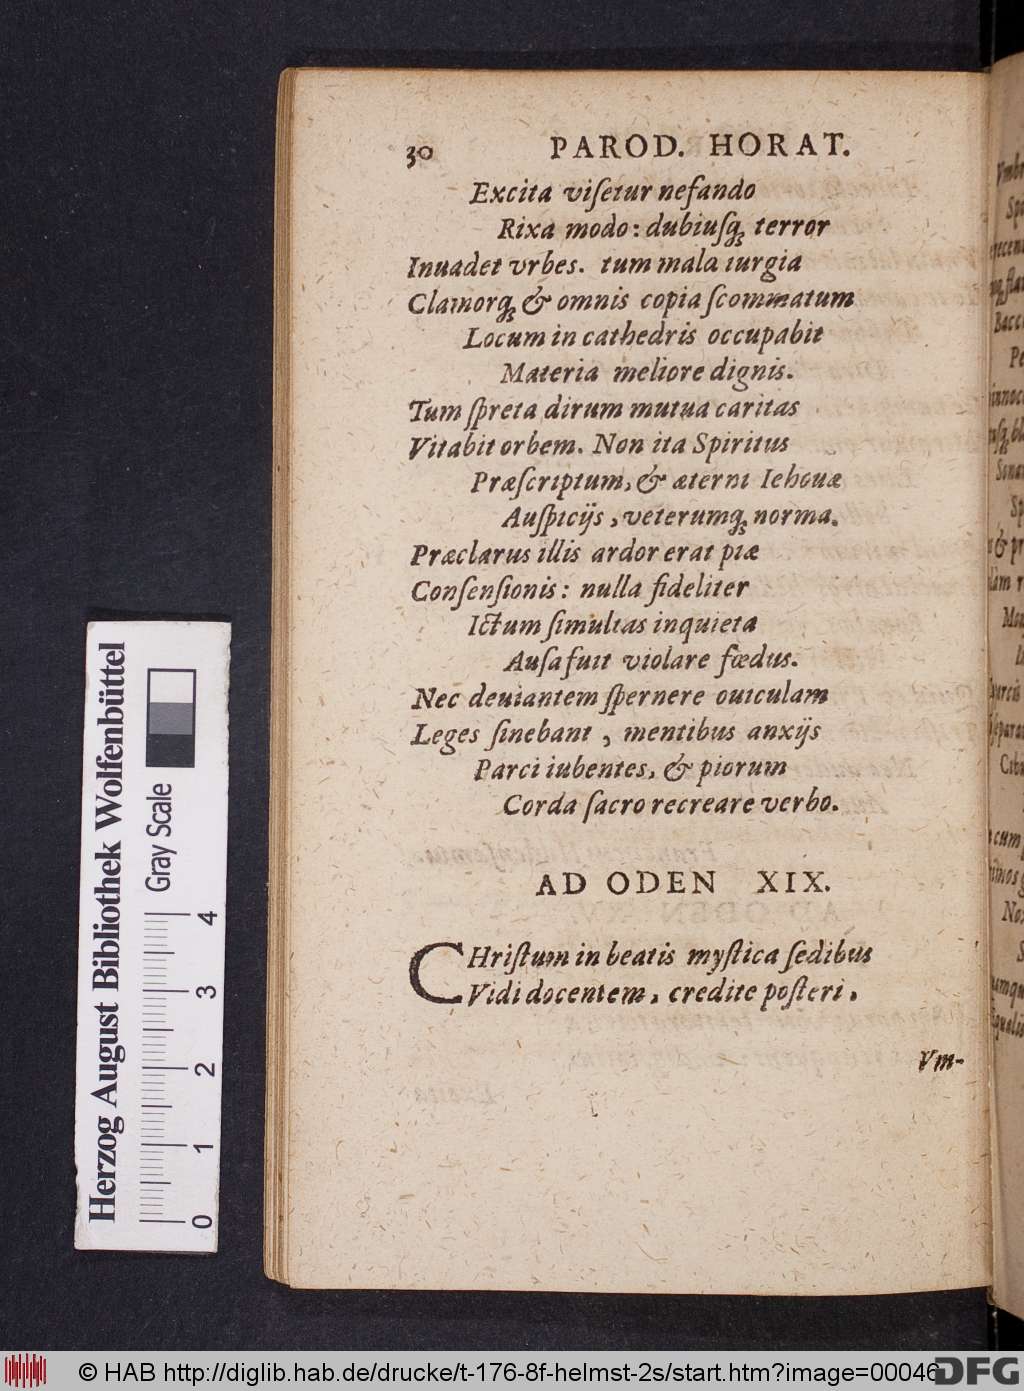 30 PAROD. HORAT.
Excita viſetur nefando
Rixa modo: dubiuſq́; terror
Inuadet vrbes. tum mala iurgia
Clamorq́; & omnis copia ſcommatum
Locum in cathedris occupabit
Materia meliore dignis.
Tum ſpreta dirum mutua caritas
Vitabit orbem. Non ita Spiritus
Præſcriptum, & æterni Iehouæ
Auſpicijs, veterumq́; norma.
Præclarus illis ardor erat piæ
Conſenſionis: nulla fideliter
Ictum ſimultas inquieta
Auſa fuit violare fœdus.
Nec deuiantem ſpernere ouiculam
Leges ſinebant, mentibus anxijs
Parci iubentes, & piorum
Corda ſacro recreare verbo.
AD ODEN XIX.
CHriſtum in beatis myſtica ſedibus
Vidi docentem, credite poſteri,
Vm-
Herzog August Bibliothek Wolfenbüttel
Gray Scale
0 1 2 3 4
© HAB http://diglib.hab.de/drucke/t-176-8f-helmst-2s/start.htm?image=00046
DFG